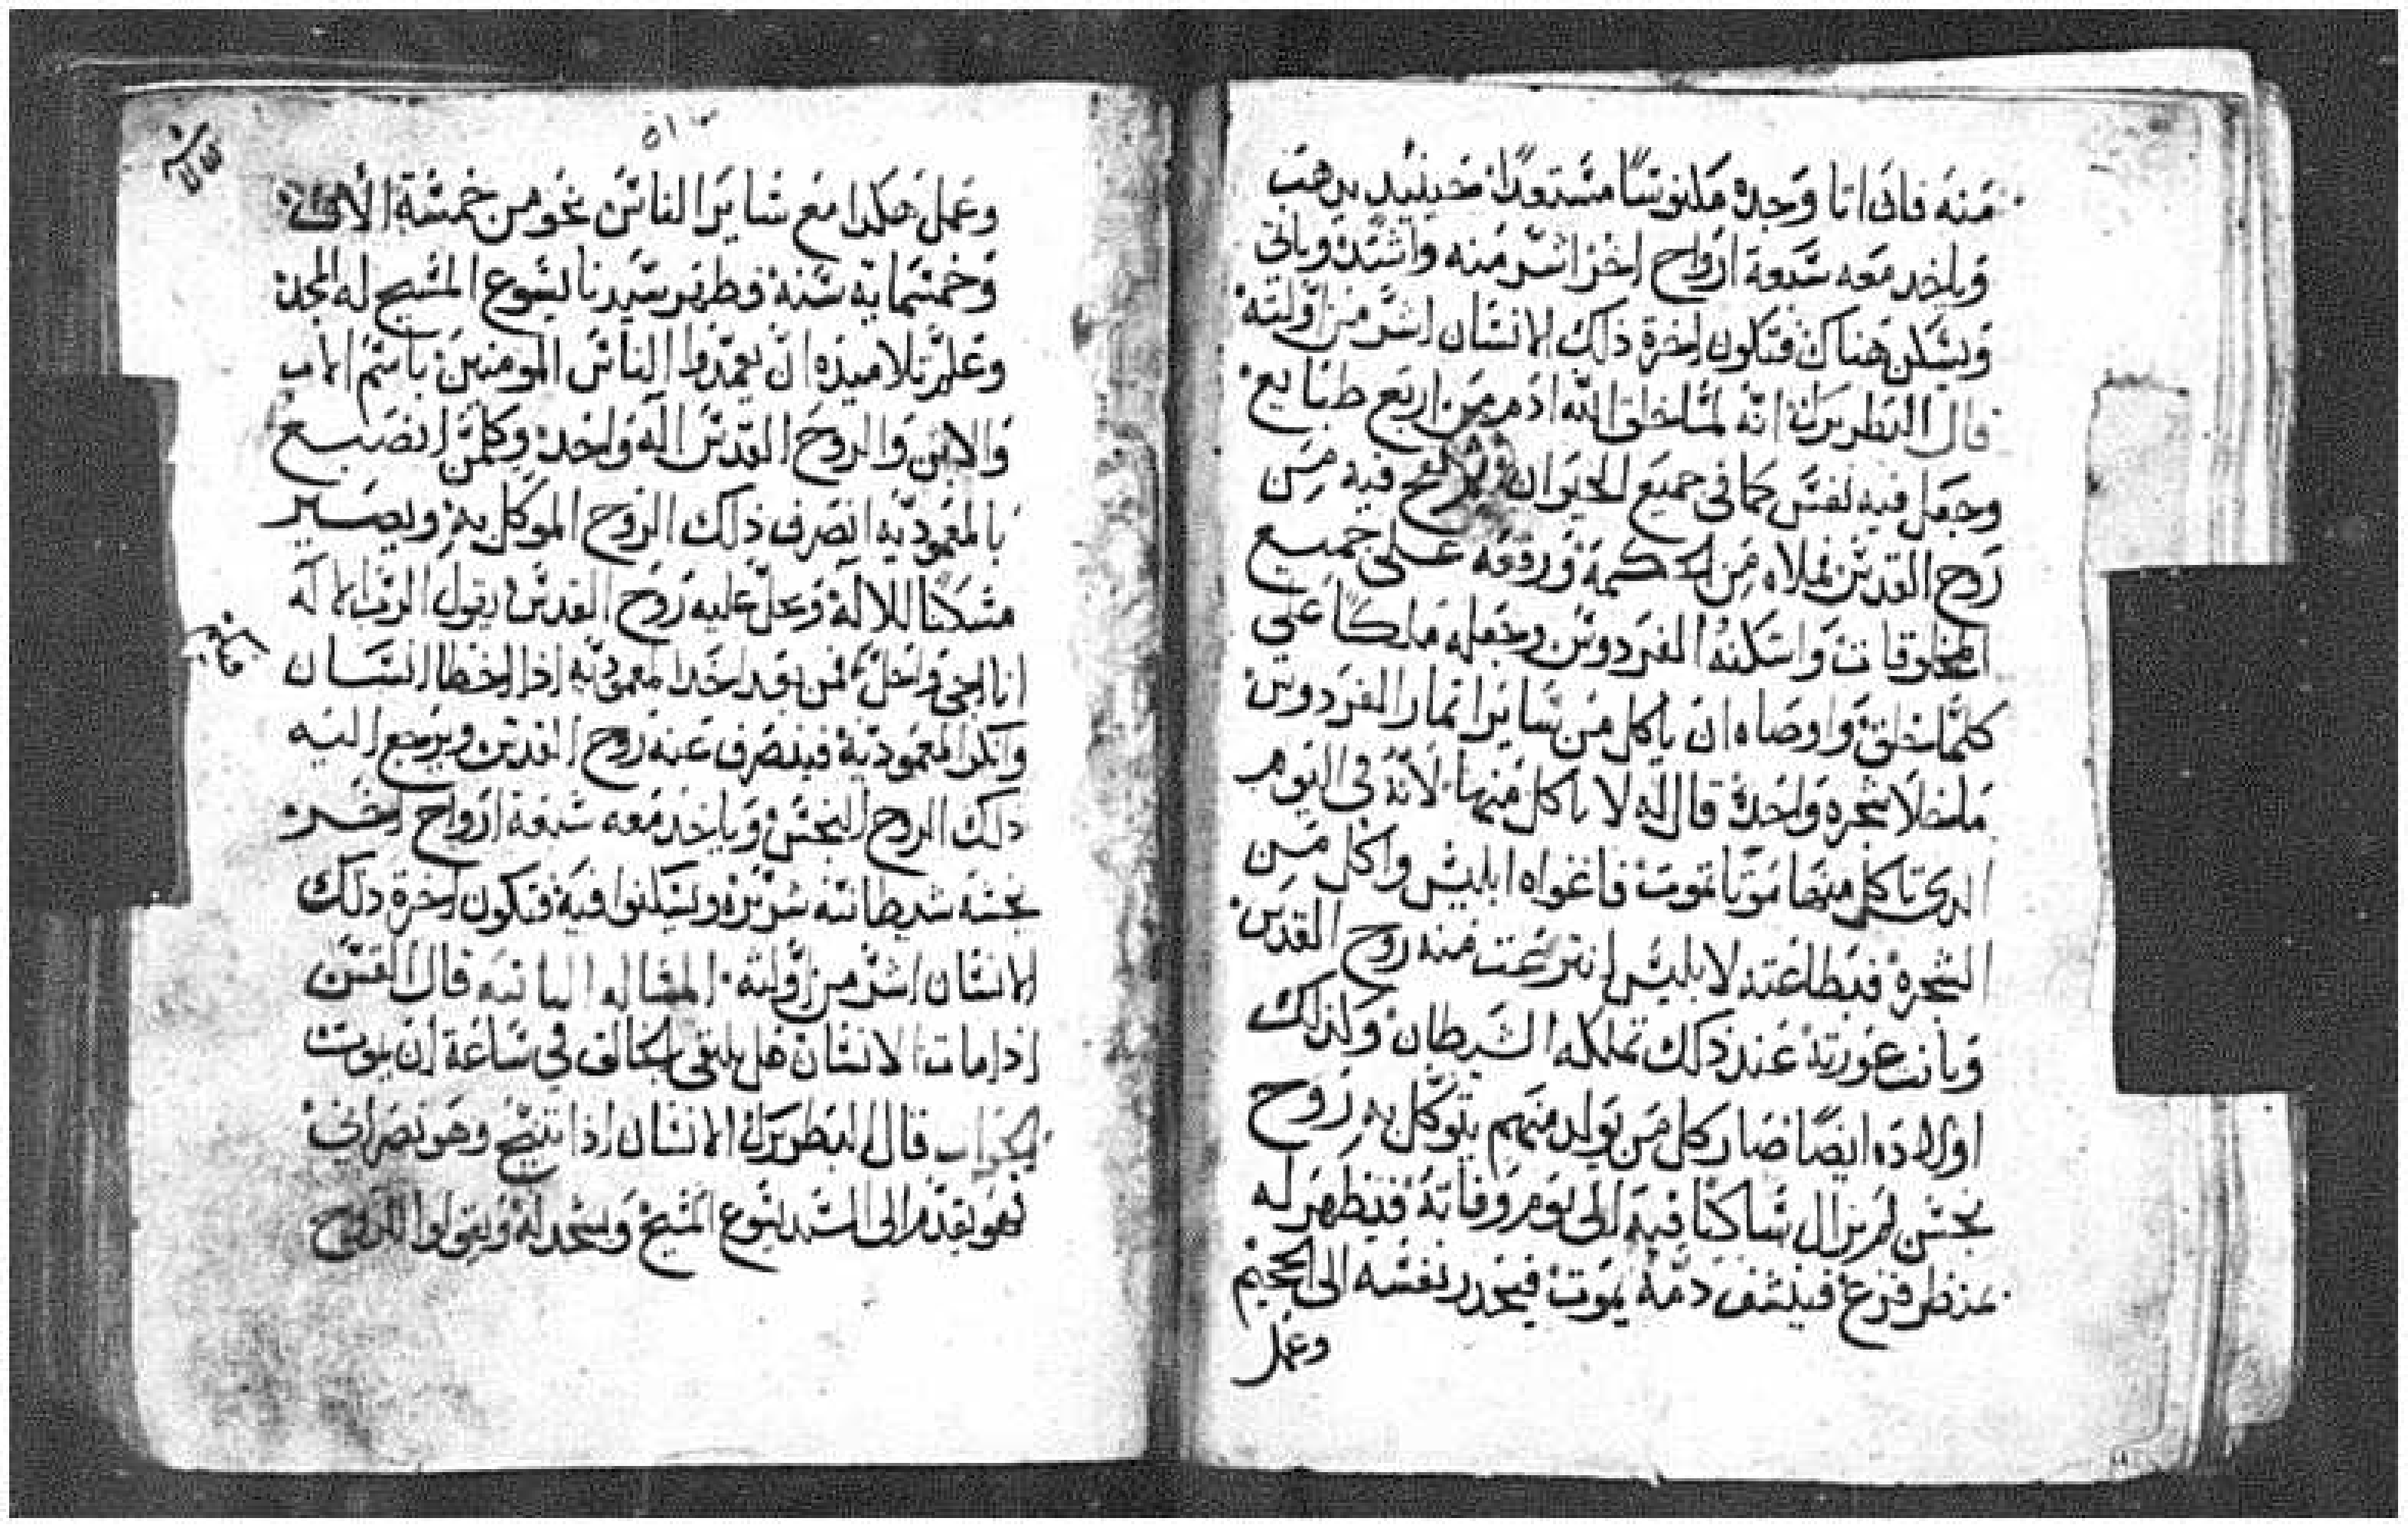 منه فاذا اتا وجده مكنوسًا مستعدًا فحينيد يدهب
وياخد معه سبعة ارواح اخر اشر منه واشتد وياتي
ويسكن هناك فتكون اخرة ذلك الانسان اشر من اولته
قال البطريرك انه لما خلق الله ادم من اربع طبايع
وجعل فيه نفس كما في جميع الحيوان فيه من
روح القدس فملاه من الحكمة ورفعه على جميع
المخلوقات واسكنه الفردوس وجعله ملكًا على
كلما خلق واوصاه ان ياكل من ساير اتمار الفردوس
ماخلا شجره واحدة قال له لا تاكل منها لانه في اليوم
الدي تاكل منها موتا تموت فاغواه ابليس واكل من
الشجرة فبطاعته لابليس انتزعت منه روح القدس
وبانت عورته عند ذلك تملكه الشيطان ولذلك
اولاده ايضًا صار كل من يولد منهم يتوكل به روح
نجس لم يزال ساكنًا فيه الى يوم وفاته فيظهر له
بمنظر فزع فينشف دمه يموت فيحدر نفسه الى الجحيم
وعمل
٥١
وعمل هكدا مع ساير الناس نحو من خمسة الاف
وخمسماية سنة فظهر سيدنا يسوع المسيح له المجد
وعلم تلاميذه ان يعمدوا الناس المومنين باسم الاب
والابن والروح القدس اله واحد وكلمن انصبغ
بالمعموديه انصرف ذلك الروح الموكل به ويصير
مسكنًا للاله وحل عليه روح القدس يقول الرب الاله
انا اجي واحل فمن بعد اخد المعموديه اذا اخطا انسان
وانكر المعمودية فينصرف عنه روح القدس ويرجع اليه
ذلك الروح النجس وياخد معه سبعة ارواح اخر
نجسه شيطانيه شريره ويسكنوا فيه فتكون اخرة دلك
الانسان اشر من اولته المساله التانيه قال القس
اذا مات الانسان هل يلتقي بخالقه في ساعة ان يموت
الجواب قال البطريرك الانسان اذا تنيح وهو نصراني
فهو يتقدم الى السيد يسوع المسيح ويسجد له ويقولوا للروح